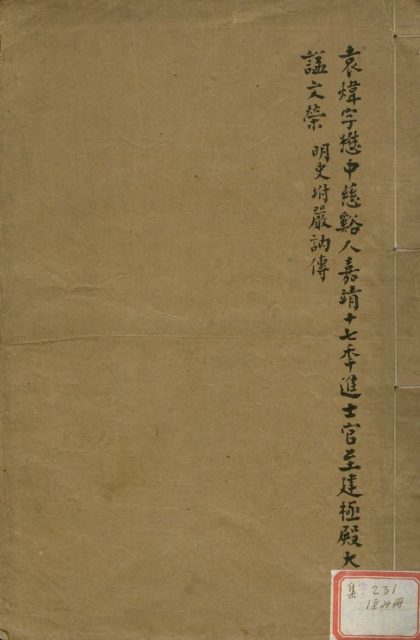 袁煒字懋中慈谿人嘉靖十七季進士官至建極殿大
諡文榮 明史坿嚴訥傳
集 231